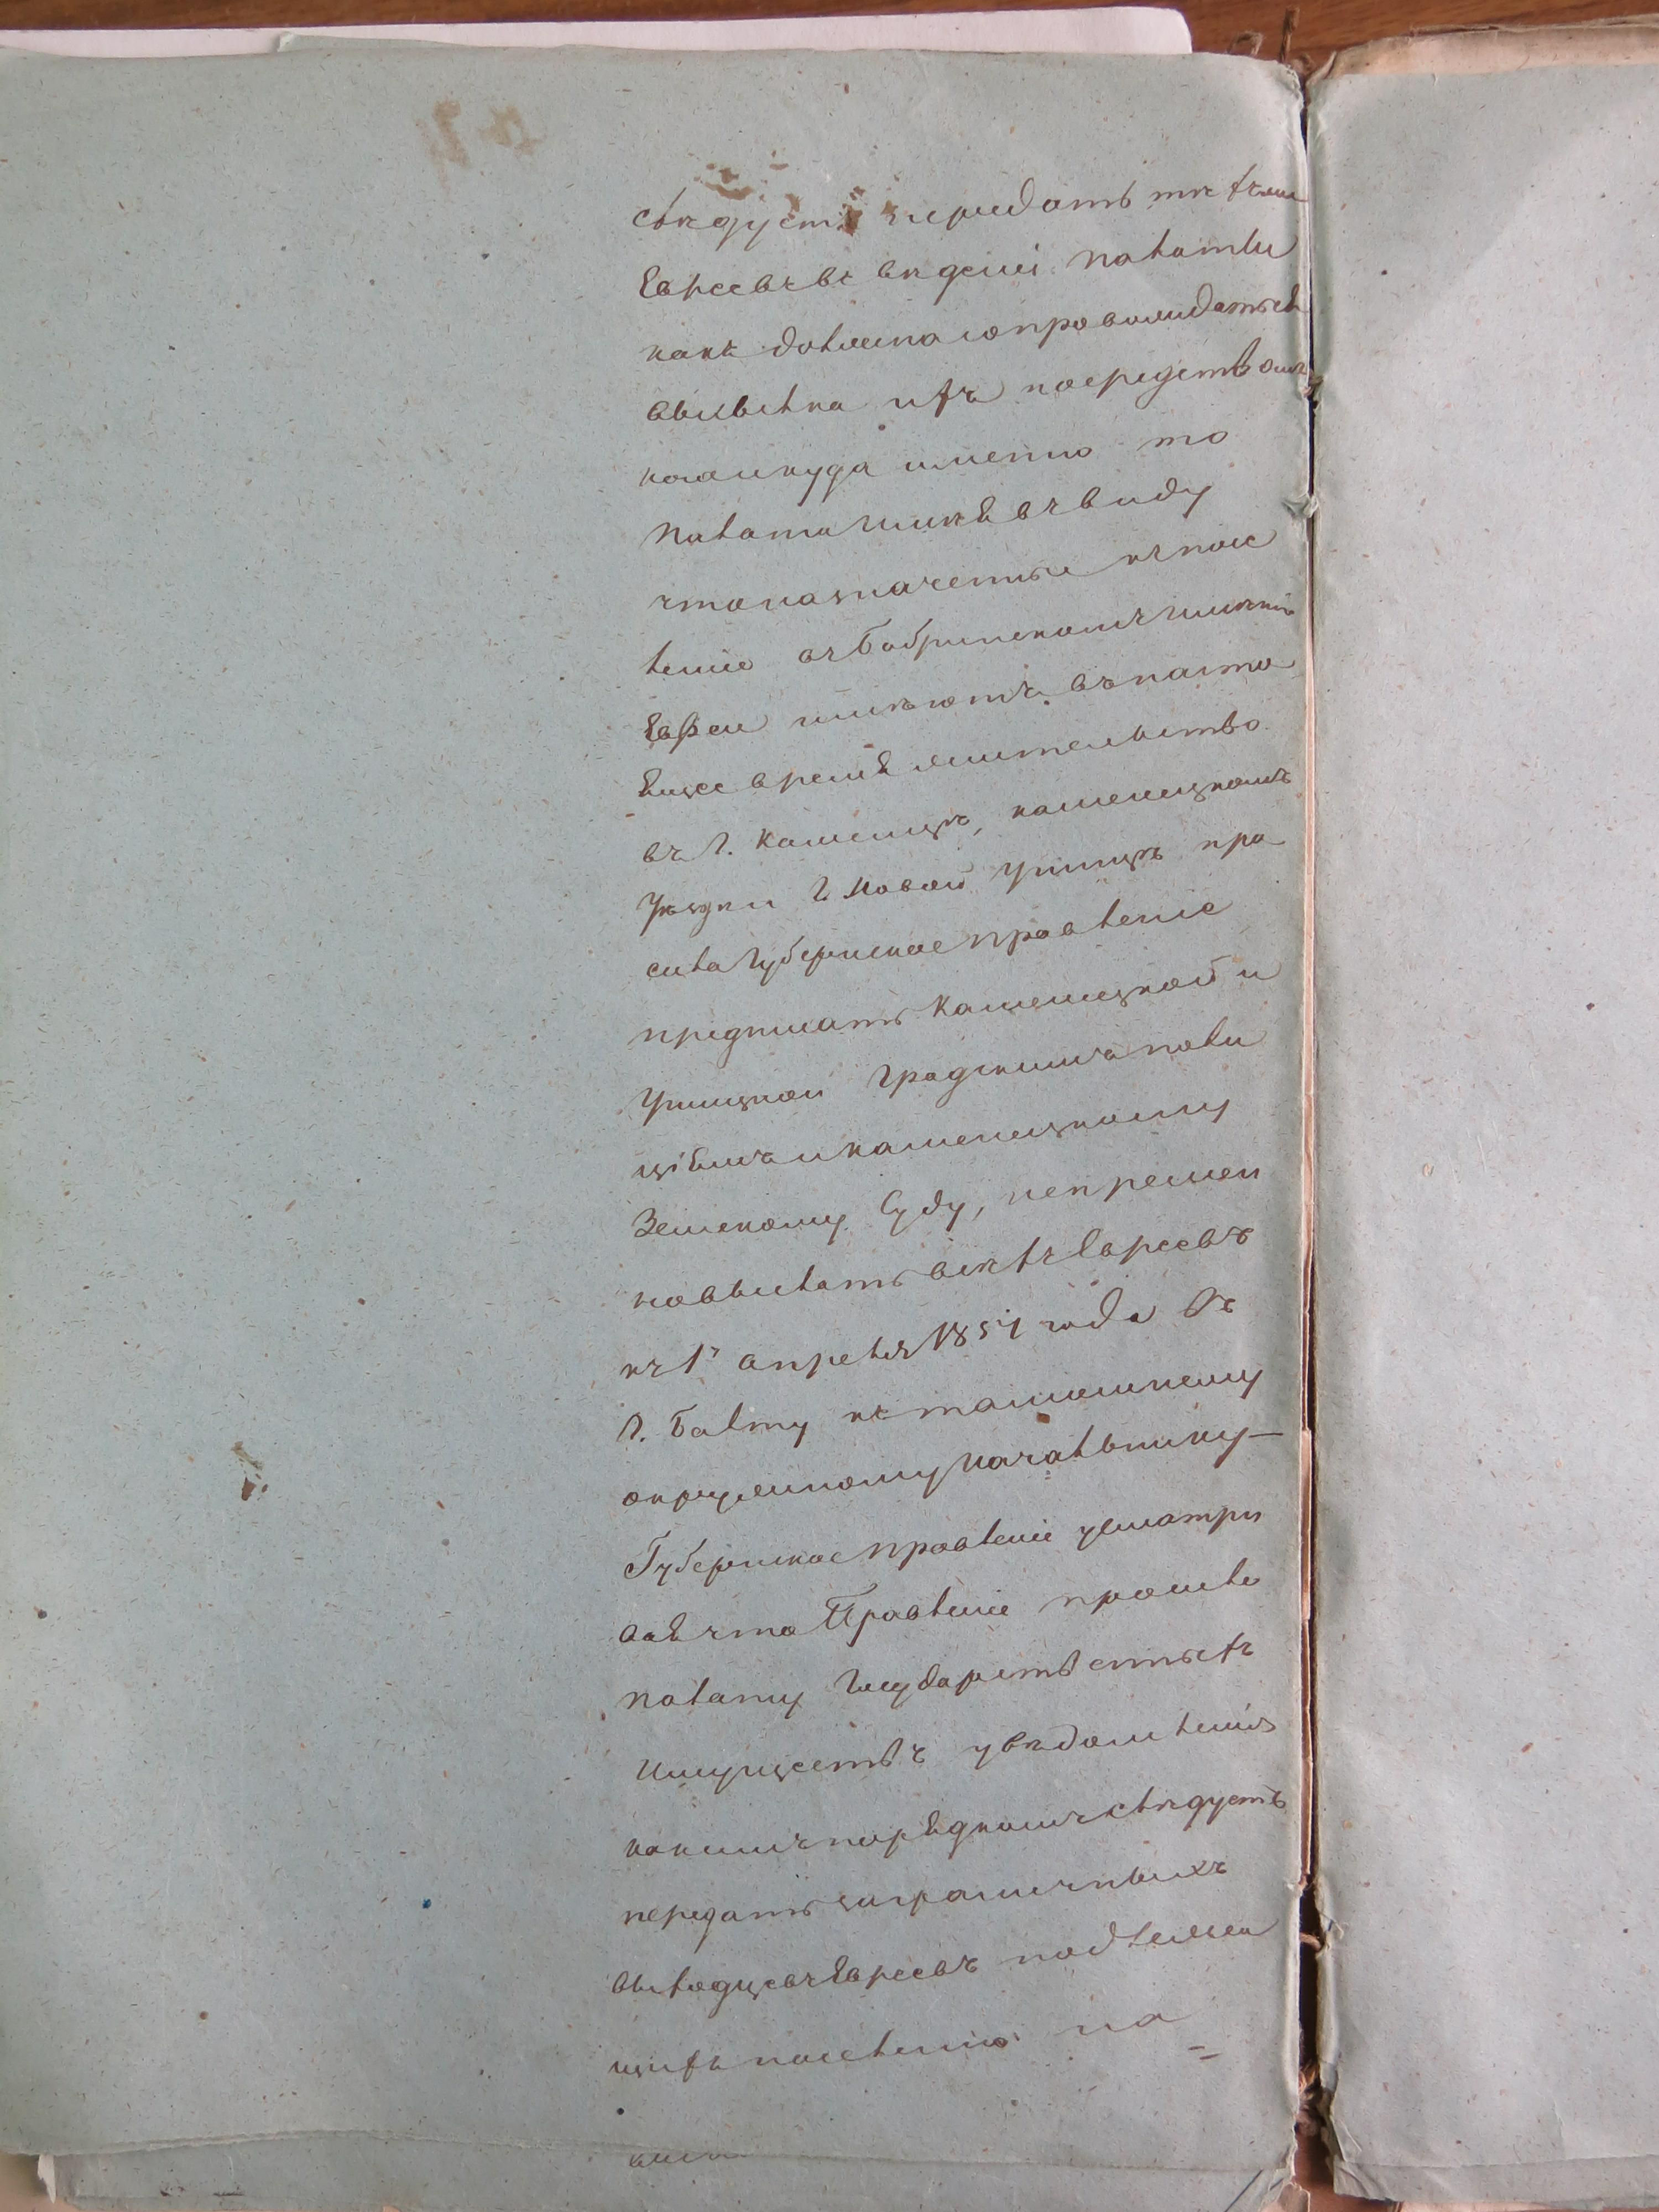 слѣдуетъ передать тѣхъ
Евреевъ въ вѣденіе палаты
какъ должна сопровождаться
высылка ихъ посредствомъ
кого и куда именно то
палата имѣя въ виду
что назначенные къ посе
леніе въ Бобринскомъ имѣніи
Евреи имѣютъ въ насто
ящее время жительство
въ Г. Каменцѣ, каменецкомъ
Уѣздѣ и Г. Новой Ушицѣ про
сила Губернское правленіе
предписать Каменецкой и
Ушицкой Градскимъ поли
ціямъ и каменецкому
Земскому Суду, непремен
но выслать всѣхъ Евреевъ
къ 1 апреля 1851 года въ
Г. Балту къ тамошнему
окружному Начальнику —
Губернское правленіе усматри
вая что Правленіе просило
палату Государственныхъ
Имуществъ уведомленія
какимъ порядкомъ слѣдуетъ
передать заграничныхъ
выходцевъ Евреевъ подлежа
щихъ поселенію на